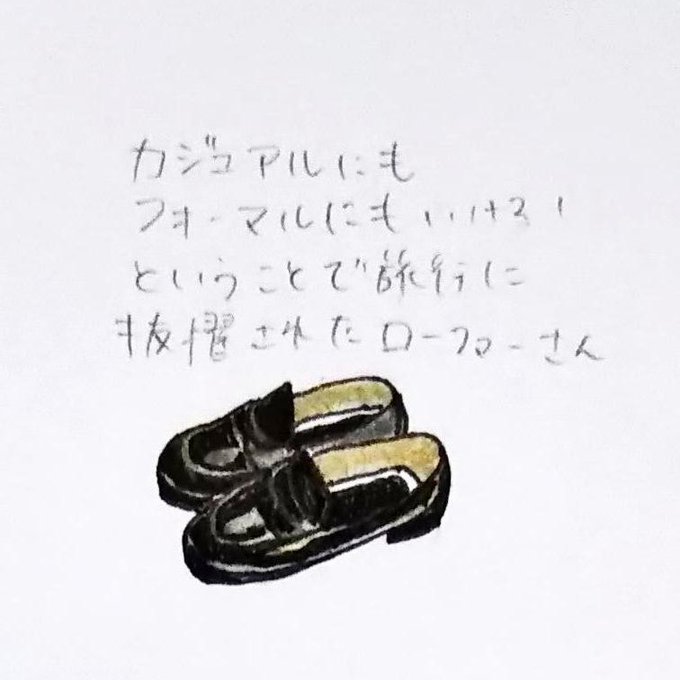 カジュアルにも
フォーマルにもいける！
ということで旅行に
抜擢されたローファーさん